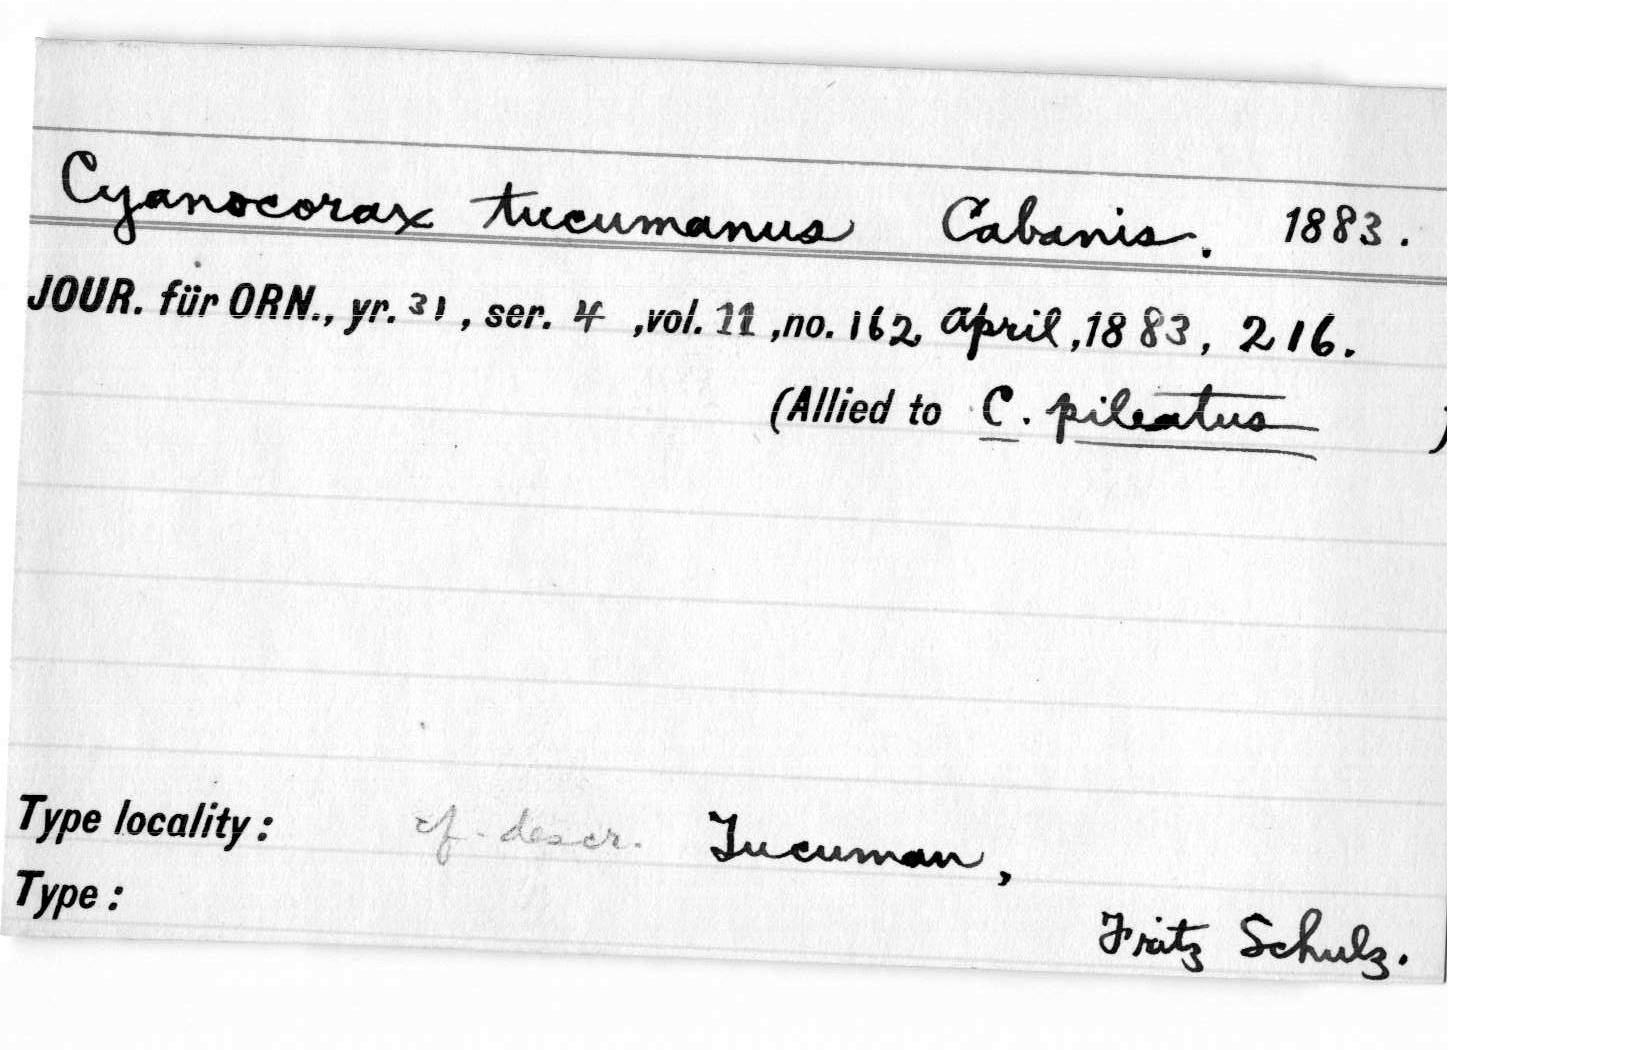 Cyanocorax tucumanus Cabanis. 1883.
JOUR. für ORN., yr. 31, ser. 4, vol. 11, no. 162, April, 1883, 216.
(Allied to C. pileatus )
Type locality: cf. descr. Tucuman,
Type:
Fritz Schulz.